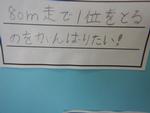 80m走で1位をとる
のをがんばりたい!